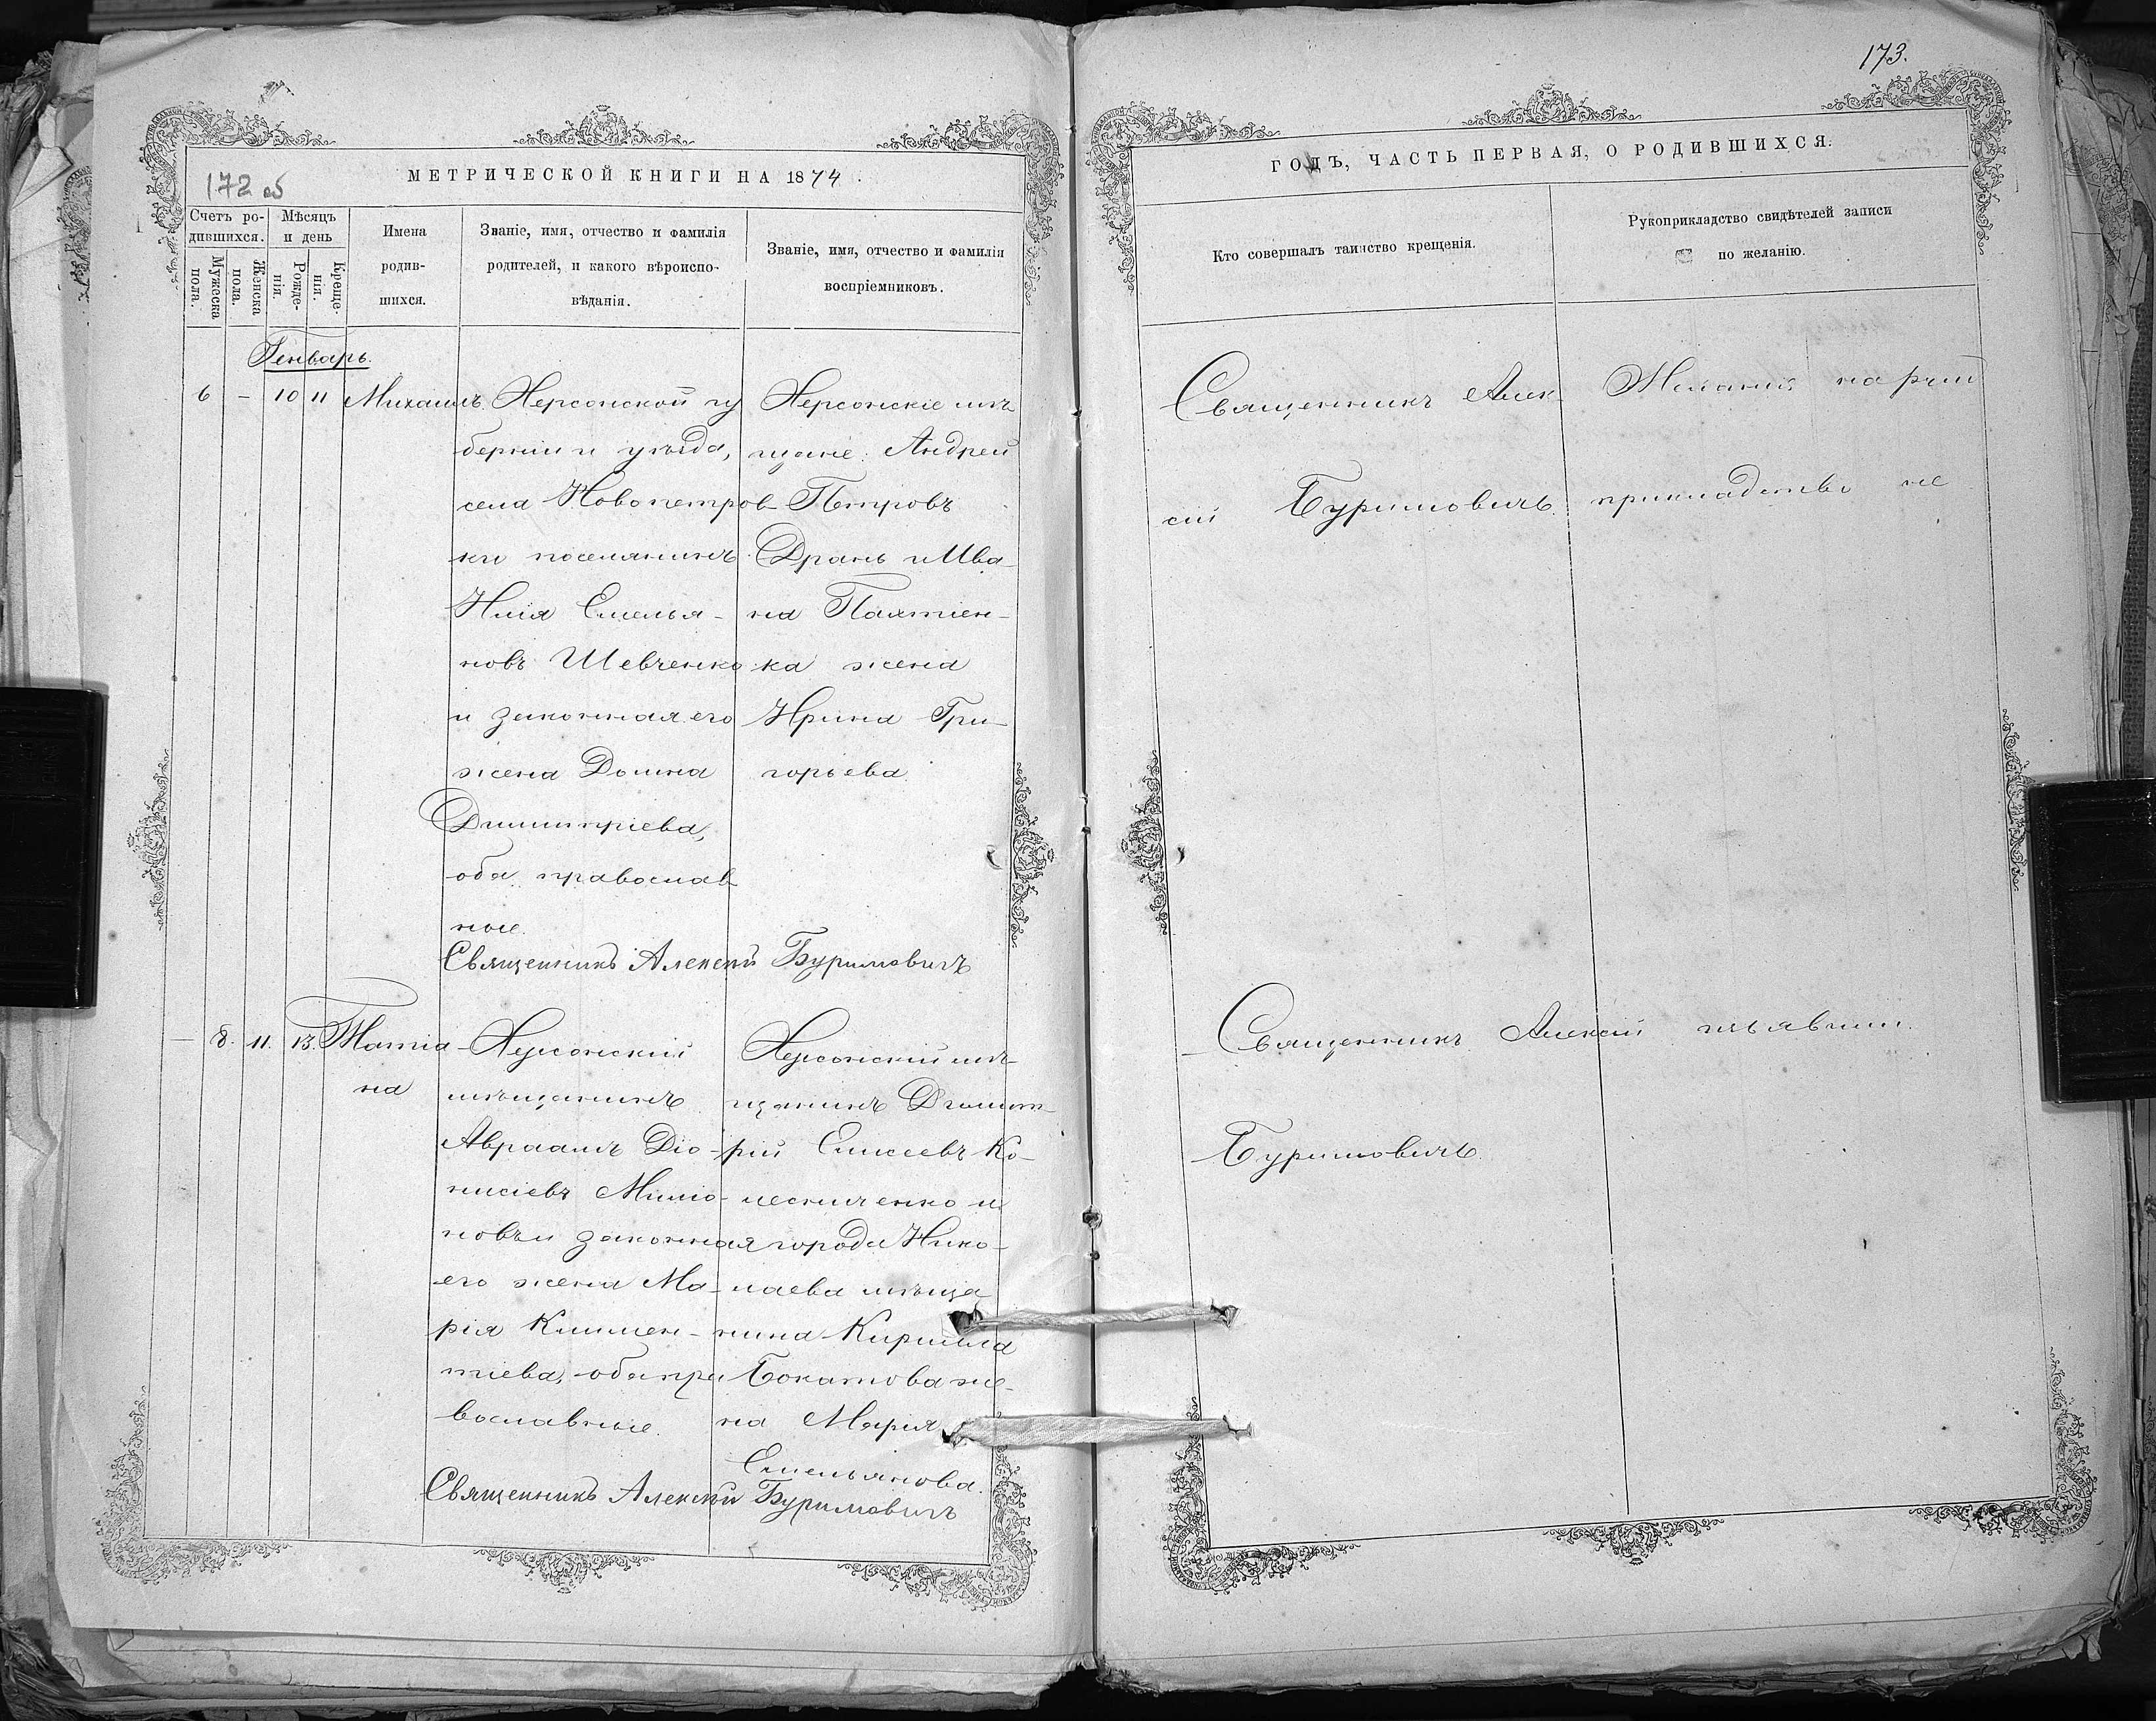 172 об
МЕТРИЧЕСКОЙ КНИГИ НА 1874
Счетъ ро-
дившихся.
Мужеска
пола.
Женска
пола.
Мѣсяцъ
и день
Рожде-
нія.
Креще-
нія.
Имена
родив-
шихся.
Званіе, имя, отчество и фамилія
родителей, и какого вѣроиспо-
вѣданія.
Званіе, имя, отчество и фамилія
воспріемниковъ.
Генварь.
6 - 10 11 Михаилъ
Херсонской гу
берніи и уѣзда,
села Новопетров-
ки поселянинъ
Илія Емелья-
новъ Шевченко
и законная его
жена Домна
Димитріева,
оба православ
ные.
Херсонскіе мѣ
щане: Андрей
Петровъ
Дрань и Ива-
на
ка жена
Ирина Гри-
горьева
Священникъ Алексѣй Буримовичъ
- 8. 11. 13. Татіа-
на
Херсонскій
мѣщанинъ
Авраамъ Діо-
нисіевъ
новъ и законная
его жена Ма-
рія Климен-
тіева, оба пра
вославные.
Херсонскій мѣ-
щанинъ Димит-
рій Елисеевъ Ко-
лесниченко и
города Нико-
лаева мѣща
нина Кирилла
Бокатова же-
на Марія
Емельянова.
Священникъ Алексѣй Буримовичъ
173.
ГОДЪ, ЧАСТЬ ПЕРВАЯ, О РОДИВШИХСЯ.
Кто совершалъ таинство крещенія.
Рукоприкладство свидѣтелей записи
по желанію.
Священникъ Алек-
сій Буримовичъ.
Желанія на руко
прикладство не
Священникъ Алексій
Буримовичъ
изъявили.